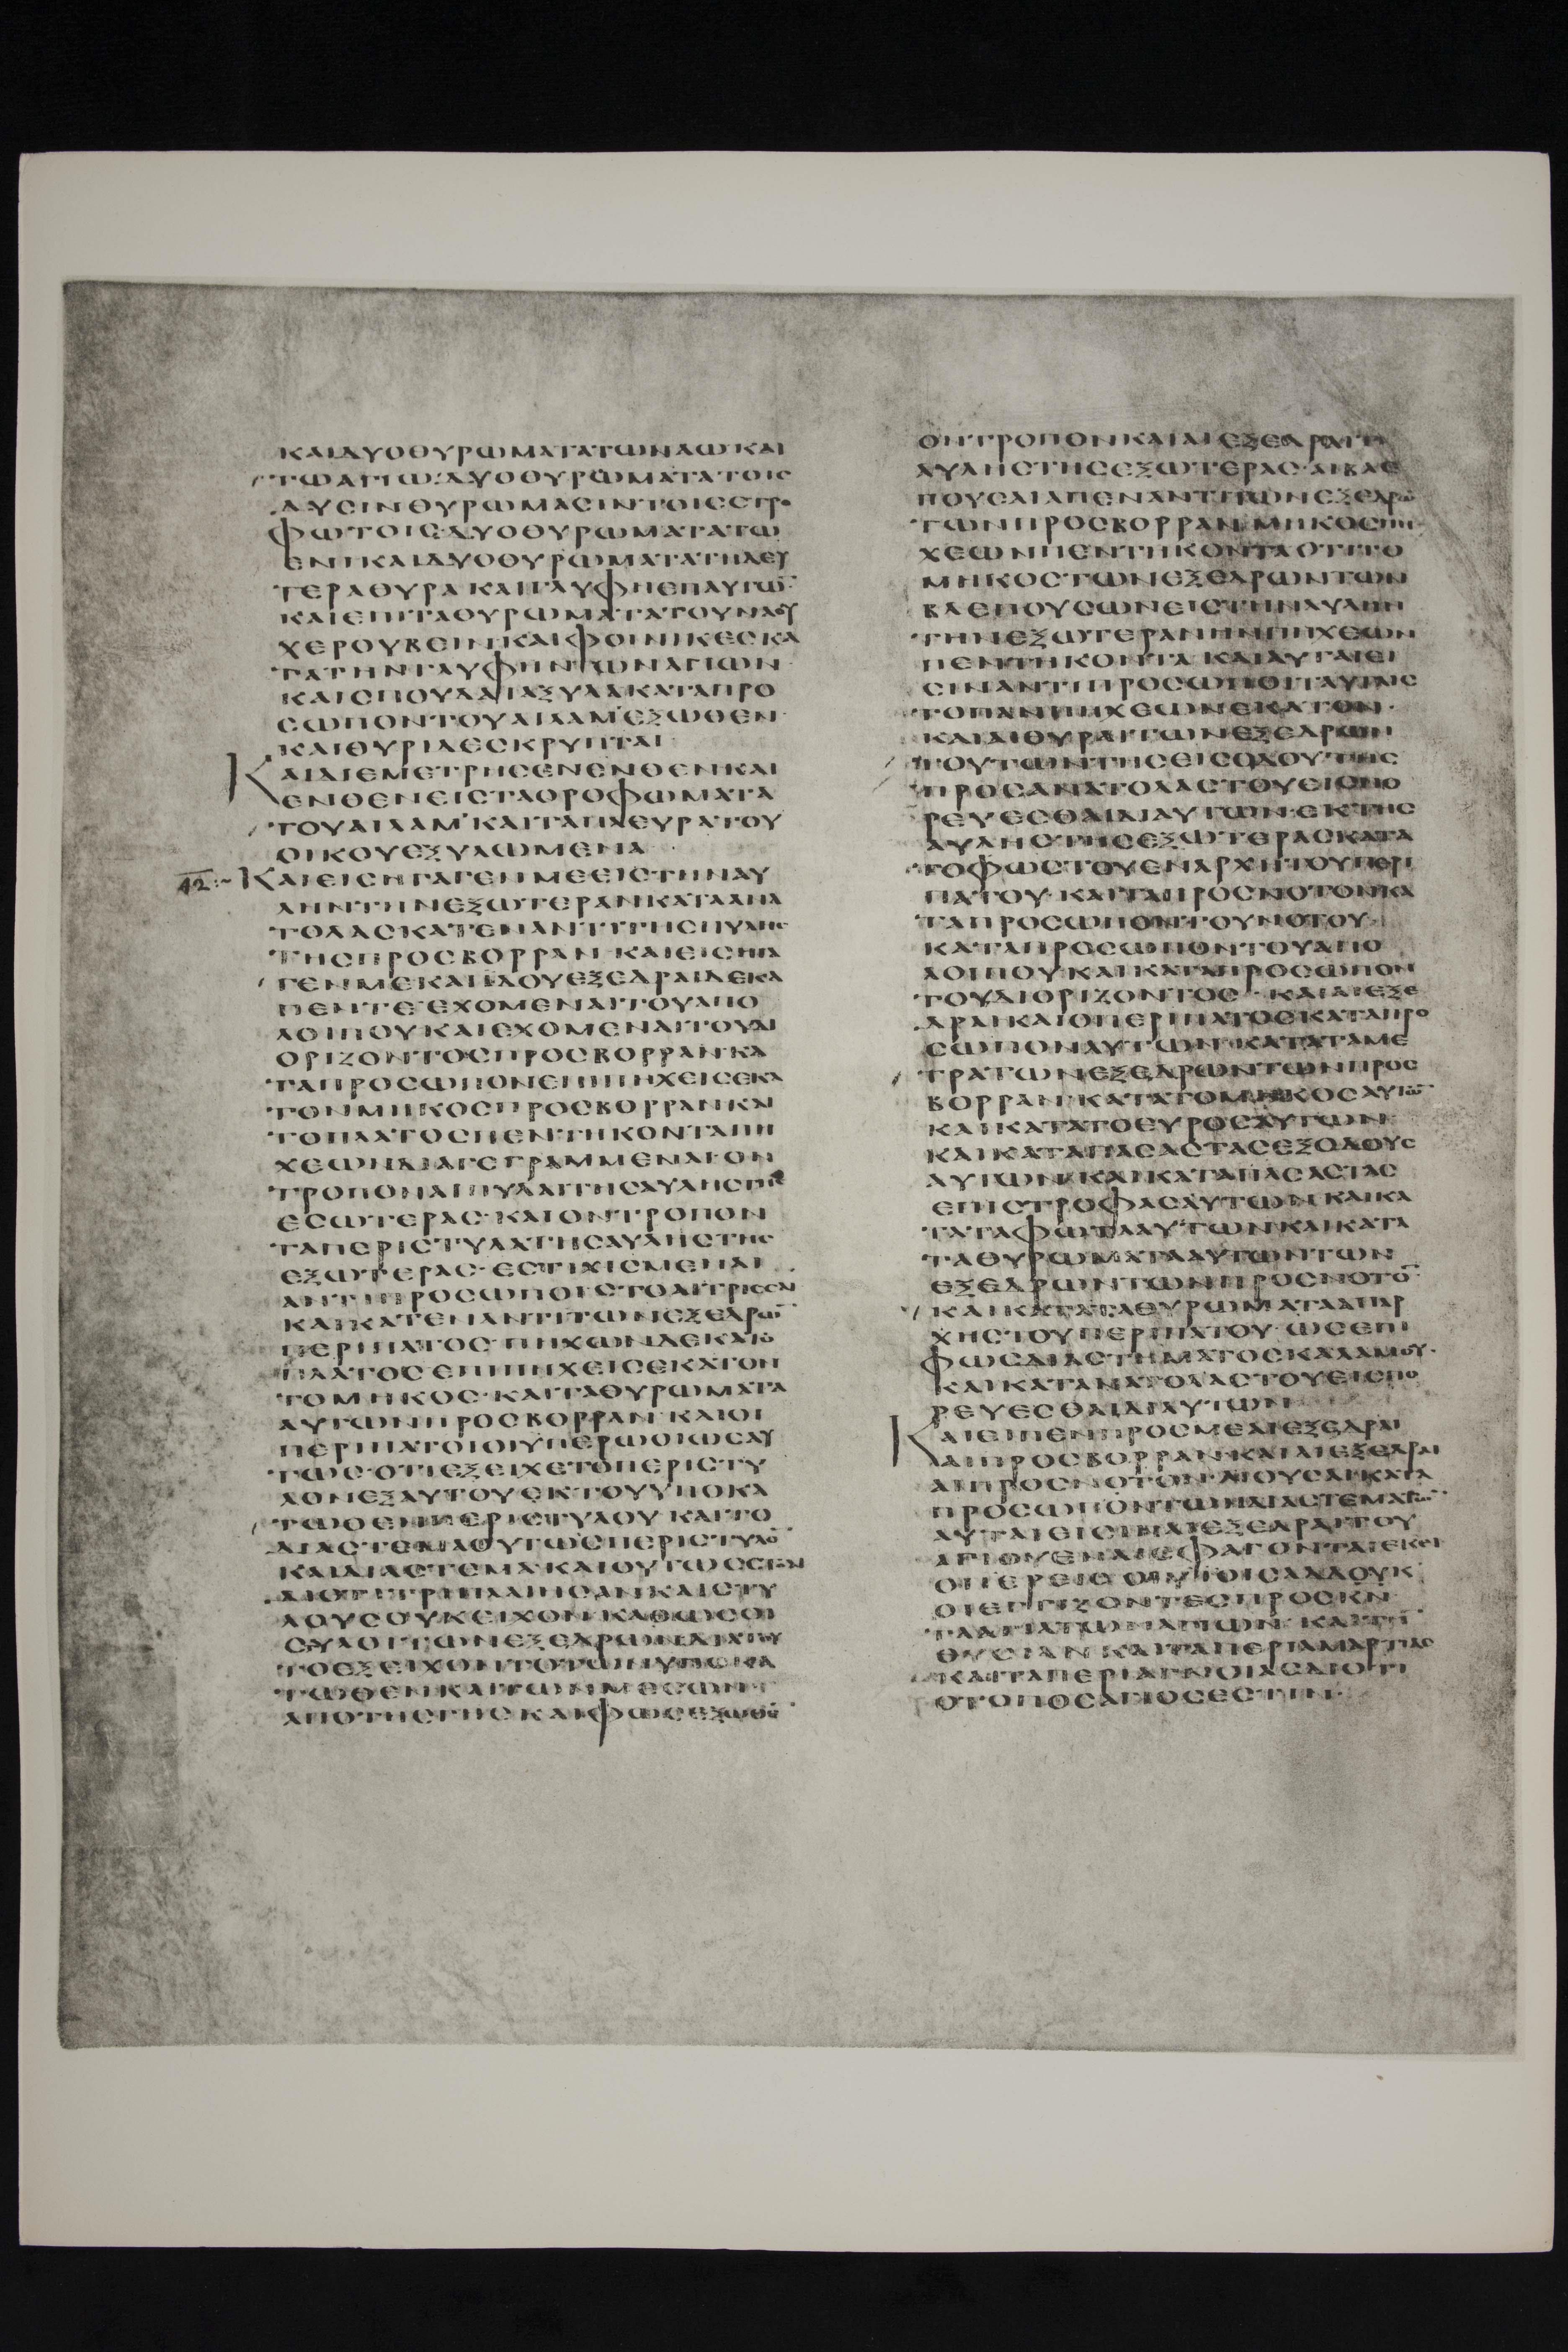 ΚΑΙΔΥΟΘΥΡΩΜΑΤΑΤΩΝΑΩΚΑΙ
ΤΩΑΓΙΩ·ΔΥΟΘΥΡΩΜΑΤΑΤΟΙΣ
ΔΥΣΙΝΘΥΡΩΜΑΣΙΝΤΟΙΣΣΤΡΟ
ΦΩΤΟΙΣ·ΔΥΟΘΥΡΩΜΑΤΑΤΩ
ΕΝΙΚΑΙΔΥΟΘΥΡΩΜΑΤΑΤΗΔΕΥ
ΤΕΡΑΘΥΡΑΚΑΙΓΛΥΦΗΕΠΑΥΤΩ̅
ΚΑΙΕΠΙΤΑΘΥΡΩΜΑΤΑΤΟΥΝΑΟΥ
ΧΕΡΟΥΒΕΙΝΚΑΙΦΟΙΝΙΚΕΣΚΑ
ΤΑΤΗΝΓΛΥΦΗΝΤΩΝΑΓΙΩΝ
ΚΑΙΣΠΟΥΔΑΙΑΞΥΛΑΚΑΤΑΠΡΟ
ΣΩΠΟΝΤΟΥΑΙΛΑΜ ΕΞΩΘΕΝ
ΚΑΙΘΥΡΙΔΕΣΚΡΥΠΤΑΙ
ΚΑΙΔΙΕΜΕΤΡΗΣΕΝΕΝΘΕΝΚΑΙ
ΕΝΘΕΝΕΙΣΤΑΟΡΟΦΩΜΑΤΑ
ΤΟΥΑΙΛΑΜ ΚΑΙΤΑΠΛΕΥΡΑΤΟΥ
ΟΙΚΟΥΕΞΥΛΩΜΕΝΑ
42 ΚΑΙΕΙΣΗΓΑΓΕΝΜΕΕΙΣΤΗΝΑΥ
ΛΗΝΤΗΝΕΞΩΤΕΡΑΝΚΑΤΑΑΝΑ
ΤΟΛΑΣΚΑΤΕΝΑΝΤΙΤΗΣΠΥΛΗΣ
ΤΗΣΠΡΟΣΒΟΡΡΑΝ ΚΑΙΕΙΣΗΓΑ
ΓΕΝΜΕΚΑΙΙΔΟΥΕΞΕΔΡΑΙΔΕΚΑ
ΠΕΝΤΕ ΕΧΟΜΕΝΑΙΤΟΥΑΠΟ
ΛΟΙΠΟΥΚΑΙΕΧΟΜΕΝΑΙΤΟΥΔΙ
ΟΡΙΖΟΝΤΟΣΠΡΟΣΒΟΡΡΑΝΚΑ
ΤΑΠΡΟΣΩΠΟΝΕΠΙΠΗΧΕΙΣΕΚΑ
ΤΟΝΜΗΚΟΣΠΡΟΣΒΟΡΡΑΝΚΑΙ
ΤΟΠΛΑΤΟΣΠΕΝΤΗΚΟΝΤΑΠΗ
ΧΕΩΝΔΙΑΓΕΓΡΑΜΜΕΝΑΙΟΝ
ΤΡΟΠΟΝΑΙΠΥΛΑΙΤΗΣΑΥΛΗΣΤΗΣ
ΕΣΩΤΕΡΑΣ·ΚΑΙΟΝΤΡΟΠΟΝ
ΤΑΠΕΡΙΣΤΥΛΑΤΗΣΑΥΛΗΣΤΗΣ
ΕΞΩΤΕΡΑΣ·ΕΣΤΙΧΙΣΜΕΝΑΙ
ΑΝΤΙΠΡΟΣΩΠΟΙΣΤΟΑΙΤΡΙΣΣΑΙ
ΚΑΙΚΑΤΕΝΑΝΤΙΤΩΝΕΞΕΔΡΩ̅
ΠΕΡΙΠΑΤΟΣ·ΠΗΧΩΝΔΕΚΑΤΟ
ΠΛΑΤΟΣΕΠΙΠΗΧΕΙΣΕΚΑΤΟΝ
ΤΟΜΗΚΟΣ·ΚΑΙΤΑΘΥΡΩΜΑΤΑ
ΑΥΤΩΝΠΡΟΣΒΟΡΡΑΝ ΚΑΙΟΙ
ΠΕΡΙΠΑΤΟΙΟΙΥΠΕΡΩΟΙΩΣΑΥ
ΤΩΣ·ΟΤΙΕΞΕΙΧΕΤΟΠΕΡΙΣΤΥ
ΛΟΝΕΞΑΥΤΟΥΕΚΤΟΥΥΠΟΚΑ
ΤΩΘΕΝΠΕΡΙΣΤΥΛΟΥ ΚΑΙΤΟ
ΔΙΑΣΤΕΜΑΟΥΤΩΣΠΕΡΙΣΤΥΛΟ̅
ΚΑΙΔΙΑΣΤΕΜΑΚΑΙΟΥΤΩΣΣΤΟΑΙ
ΔΙΟΤΙΤΡΙΠΛΑΙΗΣΑΝΚΑΙΣΤΥ
ΛΟΥΣΟΥΚΕΙΧΟΝΚΑΘΩΣΟΙ
ΣΤΥΛΟΙΤΩΝΕΞΕΔΡΩΝΔΙΑΤΟΥ
ΤΟΕΞΕΙΧΟΝΤΟΤΩΝΥΠΟΚΑ
ΤΩΘΕΝΚΑΙΤΩΝΜΕΣΩΝ
ΑΠΟΤΗΣΓΗΣΚΑΙΦΩΣΕΞΩΘΕ̅
ΟΝΤΡΟΠΟΝΚΑΙΑΙΕΞΕΔΡΑΙΤΗΣ
ΑΥΛΗΣΤΗΣΕΞΩΤΕΡΑΣ·ΑΙΒΛΕ
ΠΟΥΣΑΙΑΠΕΝΑΝΤΙΤΩΝΕΞΕΔΡΩ̅
ΤΩΝΠΡΟΣΒΟΡΡΑΝ ΜΗΚΟΣΠΗ
ΧΕΩΝΠΕΝΤΗΚΟΝΤΑΟΤΙΤΟ
ΜΗΚΟΣΤΩΝΕΞΕΔΡΩΝΤΩΝ
ΒΛΕΠΟΥΣΩΝΕΙΣΤΗΝΑΥΛΗΝ
ΤΗΝΕΞΩΤΕΡΑΝΗΝΠΗΧΕΩΝ
ΠΕΝΤΗΚΟΝΤΑ ΚΑΙΑΥΤΑΙΕΙ
ΣΙΝΑΝΤΙΠΡΟΣΩΠΟΙΤΑΥΤΑΙΣ
ΤΟΠΑΝΠΗΧΕΩΝΕΚΑΤΟΝ·
ΚΑΙΑΙΘΥΡΑΙΤΩΝΕΞΕΔΡΩΝ
ΤΟΥΤΩΝΤΗΣΕΙΣΟΔΟΥΤΗΣ
ΠΡΟΣΑΝΑΤΟΛΑΣΤΟΥΕΙΣΠΟ
ΡΕΥΕΣΘΑΙΔΙΑΥΤΩΝ·ΕΚΤΗΣ
ΑΥΛΗΣΤΗΣΕΞΩΤΕΡΑΣΚΑΤΑ
ΤΟΦΩΣΤΟΥΕΝΑΡΧΗΤΟΥΠΕΡΙ
ΠΑΤΟΥ·ΚΑΙΤΑΠΡΟΣΝΟΤΟΝΚΑ
ΤΑΠΡΟΣΩΠΟΝΤΟΥΝΟΤΟΥ
ΚΑΤΑΠΡΟΣΩΠΟΝΤΟΥΑΠΟ
ΛΟΙΠΟΥΚΑΙΚΑΤΑΠΡΟΣΩΠΟΝ
ΤΟΥΔΙΟΡΙΖΟΝΤΟΣ ΚΑΙΑΙΕΞΕ
ΔΡΑΙΚΑΙΟΠΕΡΙΠΑΤΟΣΚΑΤΑΠΡΟ
ΣΩΠΟΝΑΥΤΩΝ ΚΑΤΑΤΑΜΕ
ΤΡΑΤΩΝΕΞΕΔΡΩΝΤΩΝΠΡΟΣ
ΒΟΡΡΑΝ ΚΑΤΑΤΟΜΗΚΟΣΑΥΤΩ̅
ΚΑΙΚΑΤΑΤΟΕΥΡΟΣΑΥΤΩΝ
ΚΑΙΚΑΤΑΠΑΣΑΣΤΑΣΕΞΟΔΟΥΣ
ΑΥΤΩΝ ΚΑΙΚΑΤΑΠΑΣΑΣΤΑΣ
ΕΠΙΣΤΡΟΦΑΣΑΥΤΩΝΚΑΙΚΑ
ΤΑΤΑΦΩΤΑΑΥΤΩΝΚΑΙΚΑΤΑ
ΤΑΘΥΡΩΜΑΤΑΑΥΤΩΝΤΩΝ
ΕΞΕΔΡΩΝΤΩΝΠΡΟΣΝΟΤΟ̅
ΚΑΙΚΑΤΑΤΑΘΥΡΩΜΑΤΑΑΠΑΡ
ΧΗΣΤΟΥΠΕΡΙΠΑΤΟΥ·ΩΣΕΠΙ
ΦΩΣΔΙΑΣΤΗΜΑΤΟΣΚΑΛΑΜΟΥ·
ΚΑΙΚΑΤΑΝΑΤΟΛΑΣΤΟΥΕΙΣΠΟ
ΡΕΥΕΣΘΑΙΔΙΑΥΤΩΝ
ΚΑΙΕΙΠΕΝΠΡΟΣΜΕΑΙΕΞΕΔΡΑΙ
ΑΙΠΡΟΣΒΟΡΡΑΝ ΚΑΙΑΙΕΞΕΔΡΑΙ
ΑΙΠΡΟΣΝΟΤΟΝ·ΑΙΟΥΣΑΙΚΑΤΑ
ΠΡΟΣΩΠΟΝΤΩΝΔΙΑΣΤΕΜΑΤΩ̅
ΑΥΤΑΙΕΙΣΙΝΑΙΕΞΕΔΡΑΙΤΟΥ
ΑΓΙΟΥΕΝΑΙΣΦΑΓΟΝΤΑΙΕΚΕΙ
ΟΙΙΕΡΕΙΣ ΟΙΥΙΟΙΣΑΔΔΟΥΚ
ΟΙΕΓΓΙΖΟΝΤΕΣΠΡΟΣΚΝ
ΤΑΑΓΙΑΤΩΝΑΓΙΩΝ ΚΑΙΤΗ̅
ΘΥΣΙΑΝ ΚΑΙΤΑΠΕΡΙΑΜΑΡΤΙΑΣ
ΚΑΙΤΑΠΕΡΙΑΓΝΟΙΑΣΔΙΟΤΙ
ΟΤΟΠΟΣΑΓΙΟΣΕΣΤΙΝ